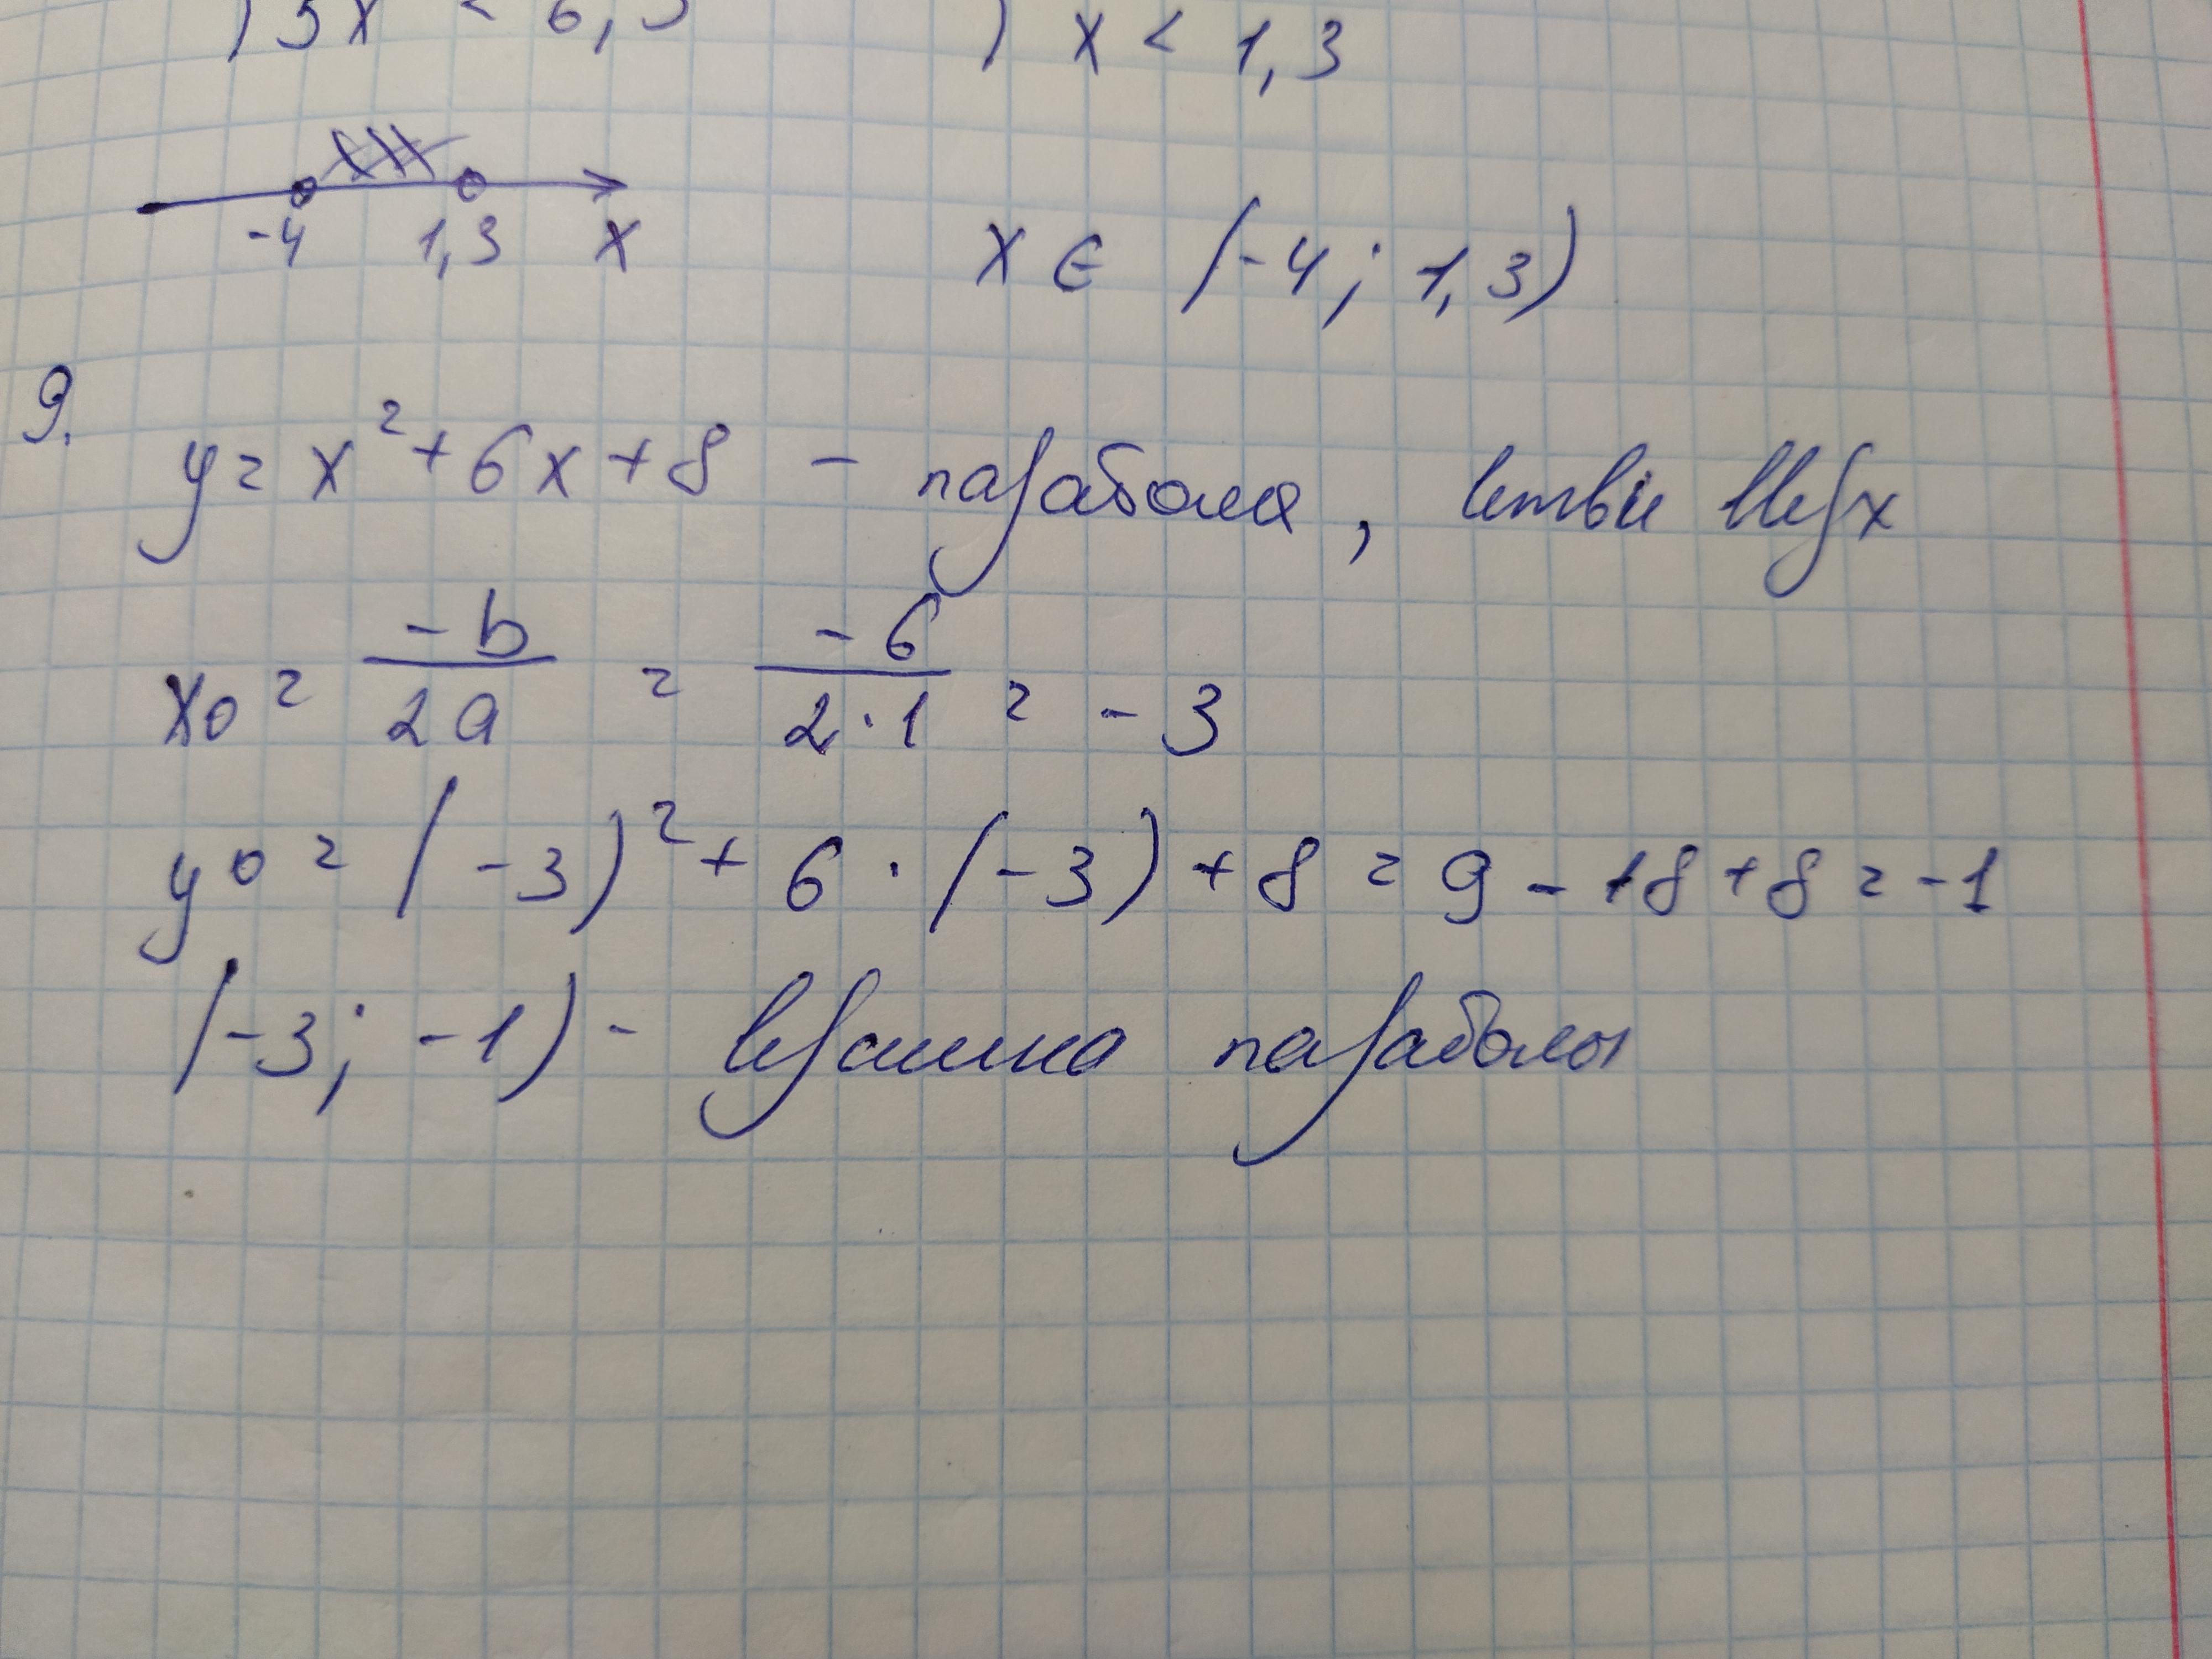 ) 5x < 6,5 ) x < 1,3
-4 1,3 x x ∈ (-4; 1,3)
9.
y = x² + 6x + 8 - парабола, ветви вверх
x0 = -b / 2a = -6 / 2·1 = -3
y0 = (-3)² + 6 · (-3) + 8 = 9 - 18 + 8 = -1
(-3; -1) - вершина параболы